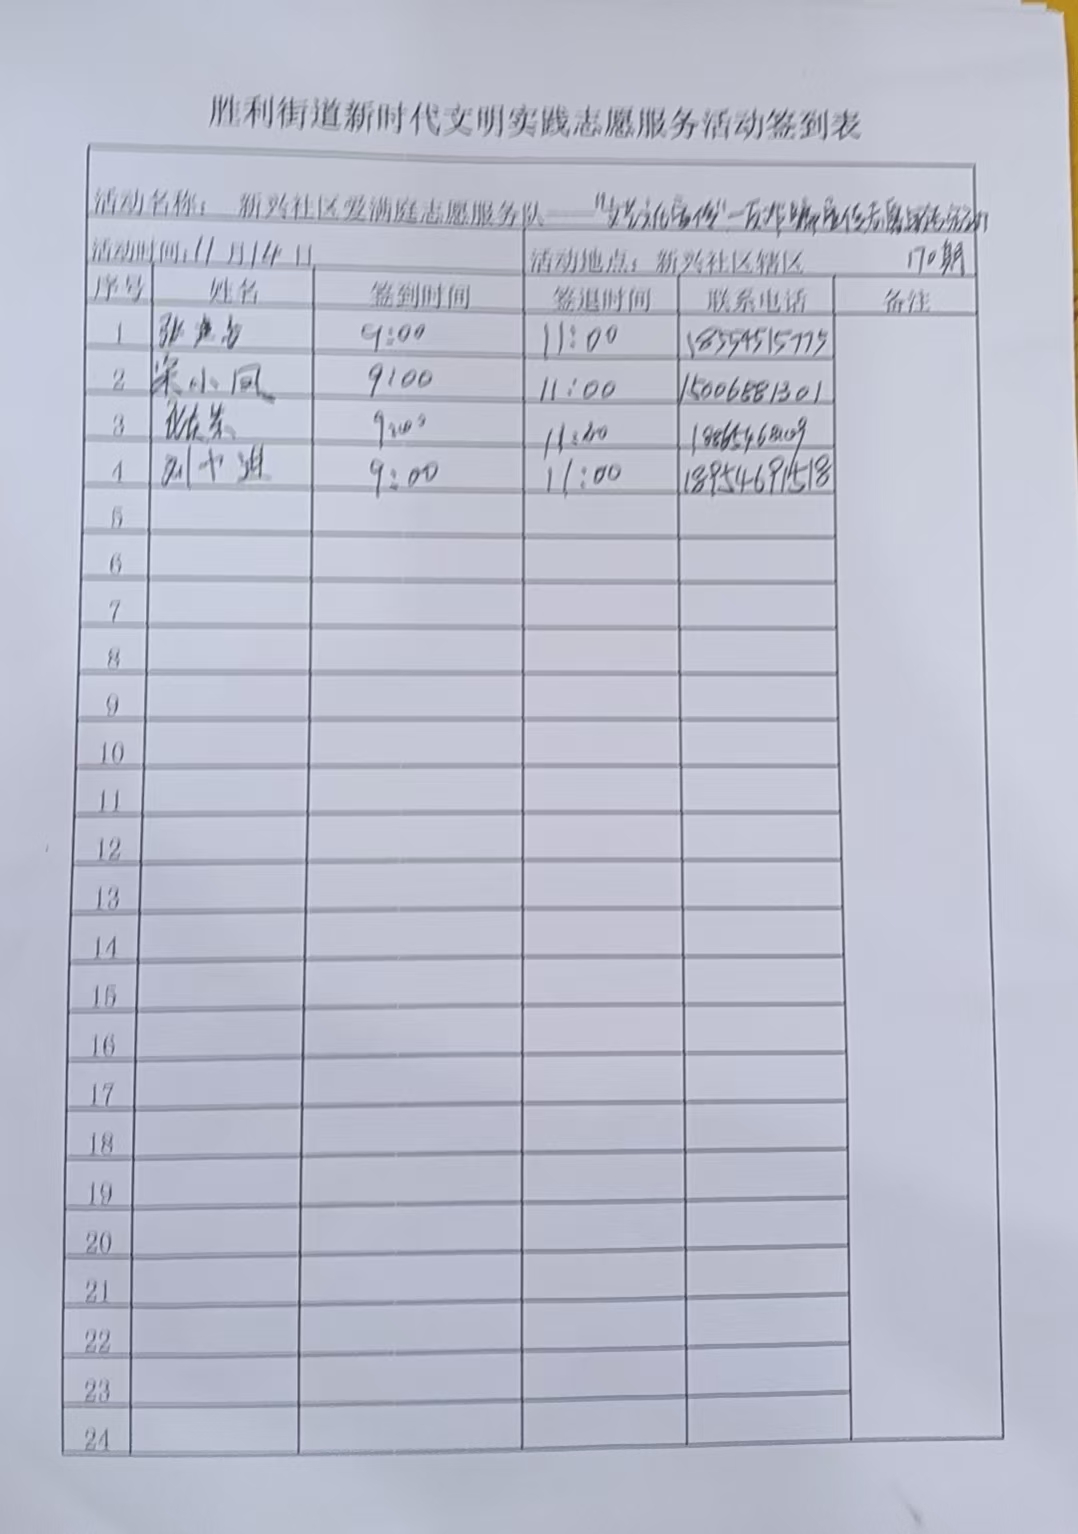 胜利街道新时代文明实践志愿服务活动签到表
活动名称： 新兴社区爱满庭志愿服务队——"文艺文化宣传"一反诈
活动时间：11月14日 活动地点：新兴社区辖区 170期
序号 姓名 签到时间 签退时间 联系电话 备注
1 张 9:00 11:00
2 宋小凤 9:00 11:00 15006881301
3 9:00 11:00
4 刘 9:00 11:00 18954691518
5
6
7
8
9
10
11
12
13
14
15
16
17
18
19
20
21
22
23
24